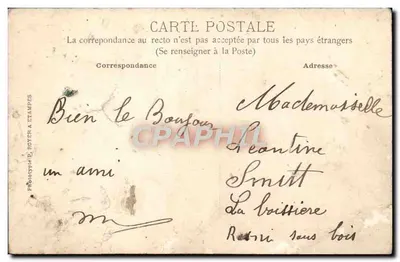 CARTE POSTALE
La correpondance au recto n'est pas acceptée par tous les pays étrangers
(Se renseigner à la Poste)
Correspondance
Adresse
Bien le Bonjour
un ami
Mademoiselle
Léontine
Smitt
La boissiere
Rosni sous bois
CPARAMA
Phototypie D. BOYER A ETAMPES